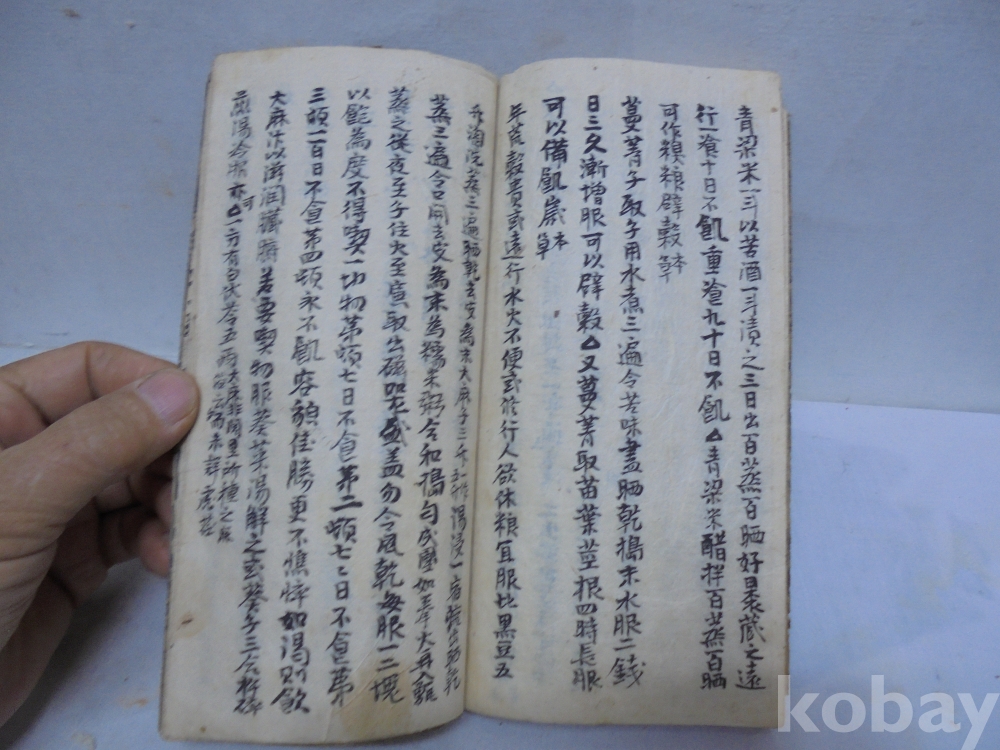 青粱米一斗以苦酒一斗漬之三日出百蒸百晒好裹藏之遠
行一飡十日不飢重飡九十日不飢△青粱米醋拌百蒸百晒
可作糗粮辟穀 本草
蔓菁子取子用水煮三遍令苦味盡晒乾搗末水服二錢
日三久漸增服可以辟穀△又蔓菁取苗葉莖根四時長服
可以備飢歲 本草
年荒穀貴或遠行水火不便或修行人欲休粮宜服此黑豆五
升淘洗蒸三遍晒乾去皮為末大麻子三升湯浸一宿晒乾
蒸三遍令口開去皮為末為糯米粥合和搗勻成團如拳大再入甑
蒸之從夜至子住火至寅取出磁器盛盖勿令風乾每服一二塊
以飽為度不得喫一切物第一頓七日不食第二頓七七日不食第
三頓一百日不食第四頓永不飢容貌佳勝更不憔悴如渴則飲
大麻汁以滋潤臟腑若要喫物服葵菜湯解之或葵子三合杵碎
煎湯冷服亦可△一方有白茯苓五兩